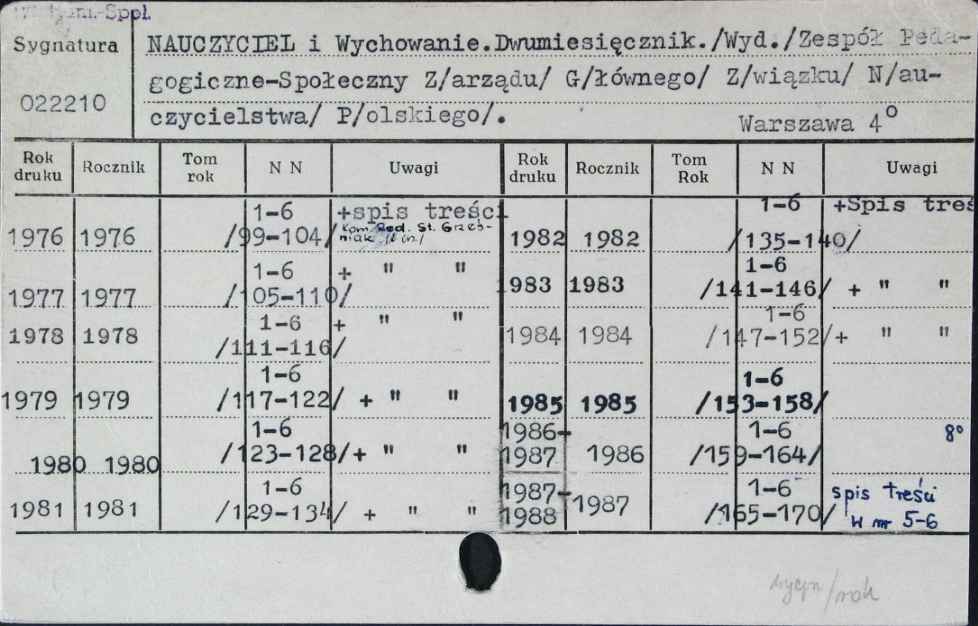 Sygnatura
022210
NAUCZYCIEL i Wychowanie.Dwumiesięcznik./Wyd./Zespół Peda-
gogiczne-Społeczny Z/arządu/ G/łównego/ Z/wiązku/ N/au-
czycielstwa/ P/olskiego/.
Warszawa 4°
Rok druku Rocznik Tom rok N N Uwagi Rok druku Rocznik Tom Rok N N Uwagi
1-6 +spis treści
1976 1976 /99-104/ Kom. Red. St. Grześ-
niak
1-6 + " "
1977 1977 /105-110/
1-6 + " "
1978 1978 /111-116/
1-6
1979 1979 /117-122/ + " "
1-6
1980 1980 /123-128/+ " "
1-6
1981 1981 /129-134/ + " "
1-6 +Spis treś
1982 1982 /135-140/
1-6
1983 1983 /141-146/ + " "
1-6
1984 1984 /147-152/+ " "
1-6
1985 1985 /153-158/
1986- 1-6 8°
1987 1986 /159-164/
1987- 1-6 spis treści
1988 1987 /165-170/ w nr 5-6
/rok